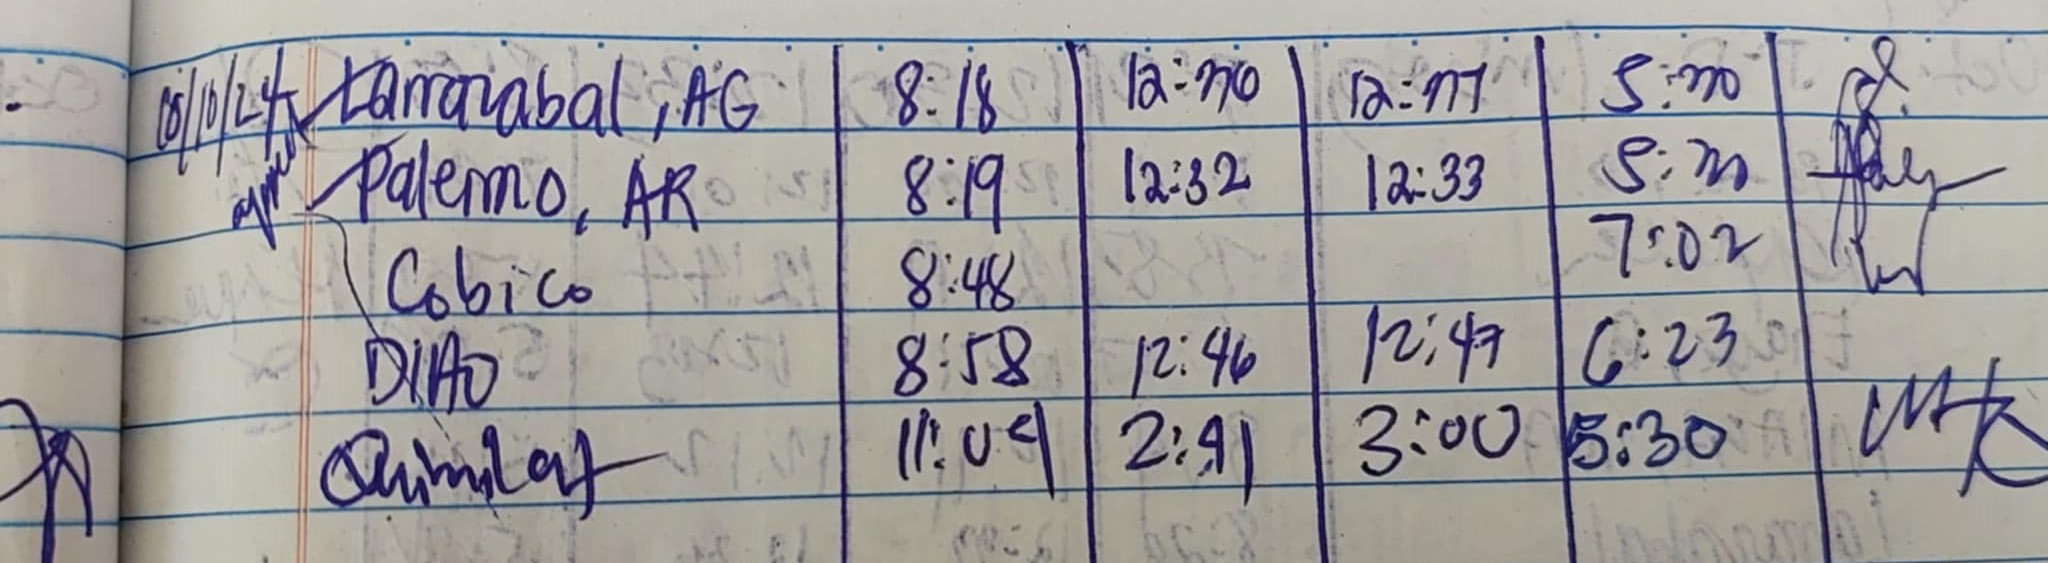 10/10/24 Larrazabal, AG 8:18 12:30 12:31 5:30
Palermo, AR 8:19 12:32 12:33 5:30
Cobico 8:48 7:02
DIAO 8:58 12:46 12:47 6:23
Quimilat 11:09 2:41 3:00 5:30